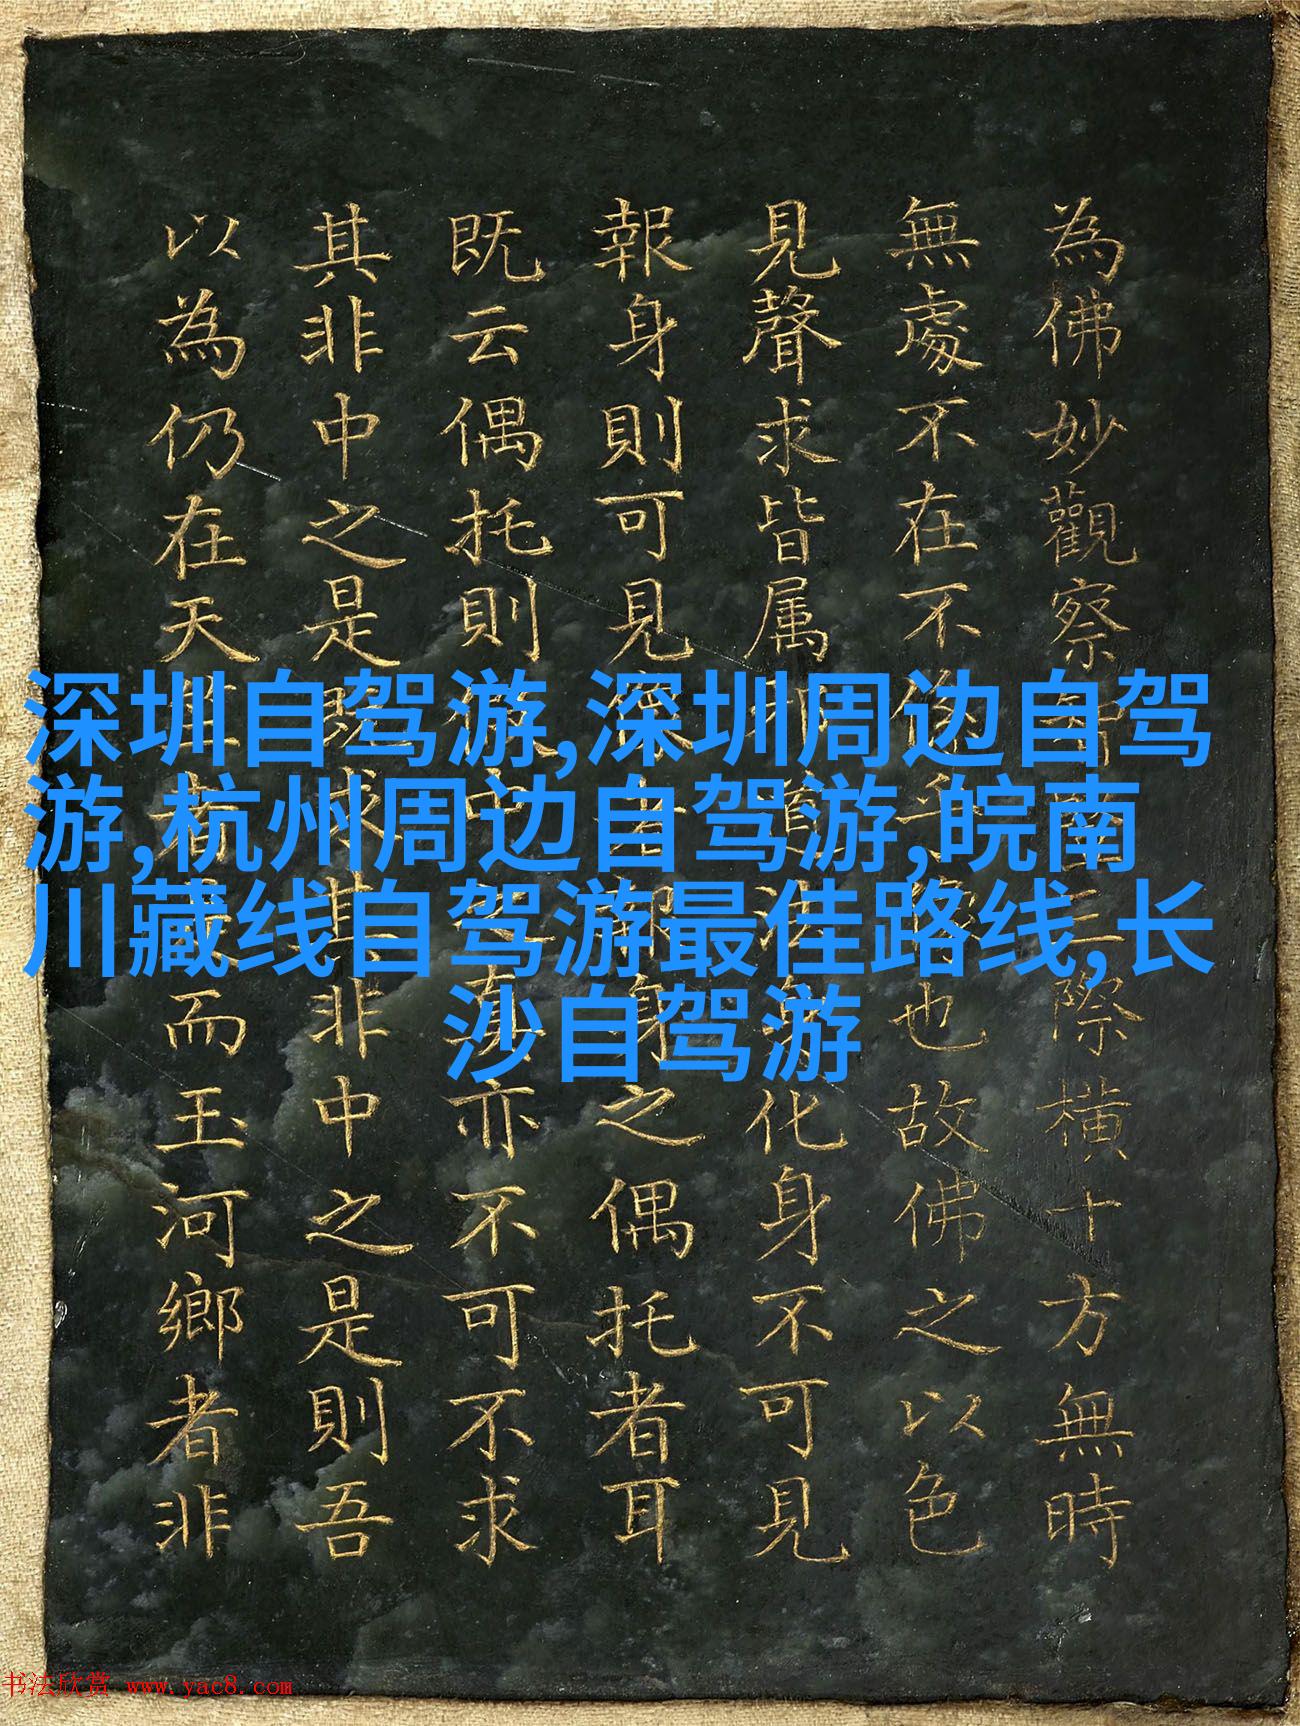 深圳自驾游,深圳周边自驾
游,杭州周边自驾游,皖南
川藏线自驾游最佳路线,长
沙自驾游
為佛妙觀察三際橫十方無時
無處不在不係乎也故佛之以色
見聲求皆属邪道法身化身不可見
報身則可見身之偶托者耳
既云偶托則彼中之真亦不可不求
其非中之是既求其非中之是則吾
以為仍在天而玉河鄉者非
书法欣赏 www.yac8.com